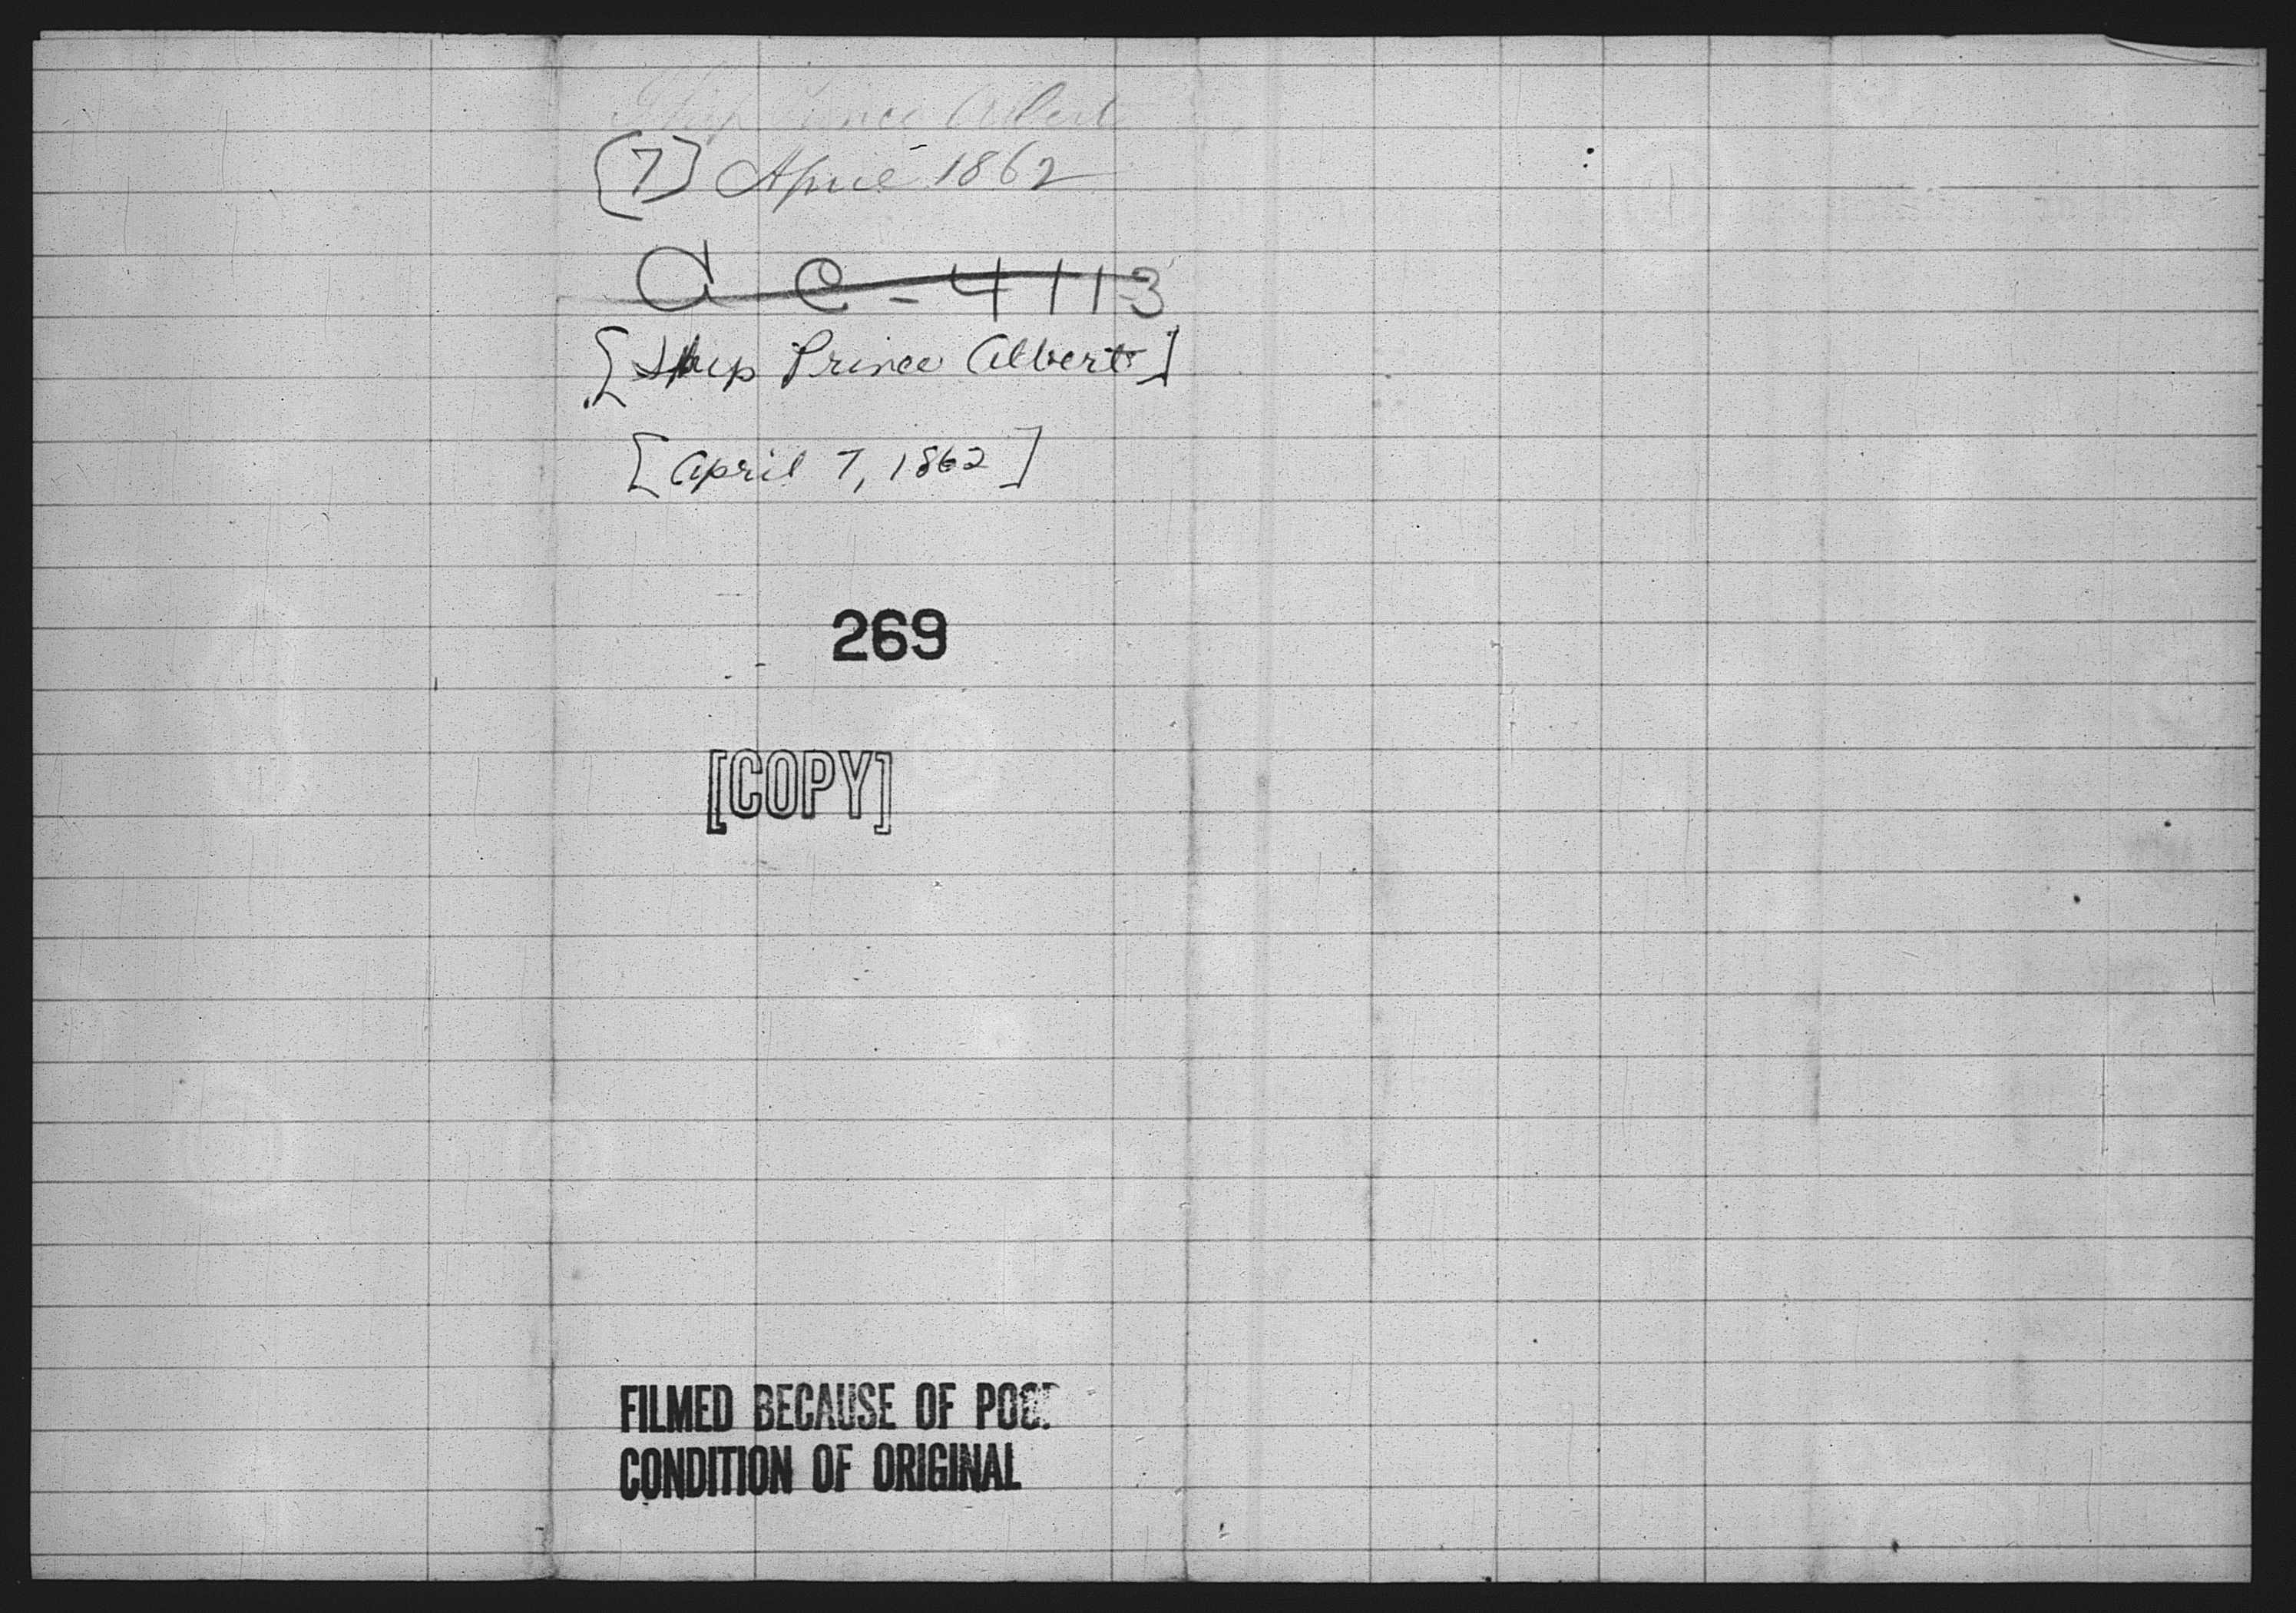 Ship Prince Albert
[7] April 1862
a c - 4113
[Ship Prince Albert]
[April 7, 1862]
269
[COPY]
FILMED BECAUSE OF POOR
CONDITION OF ORIGINAL